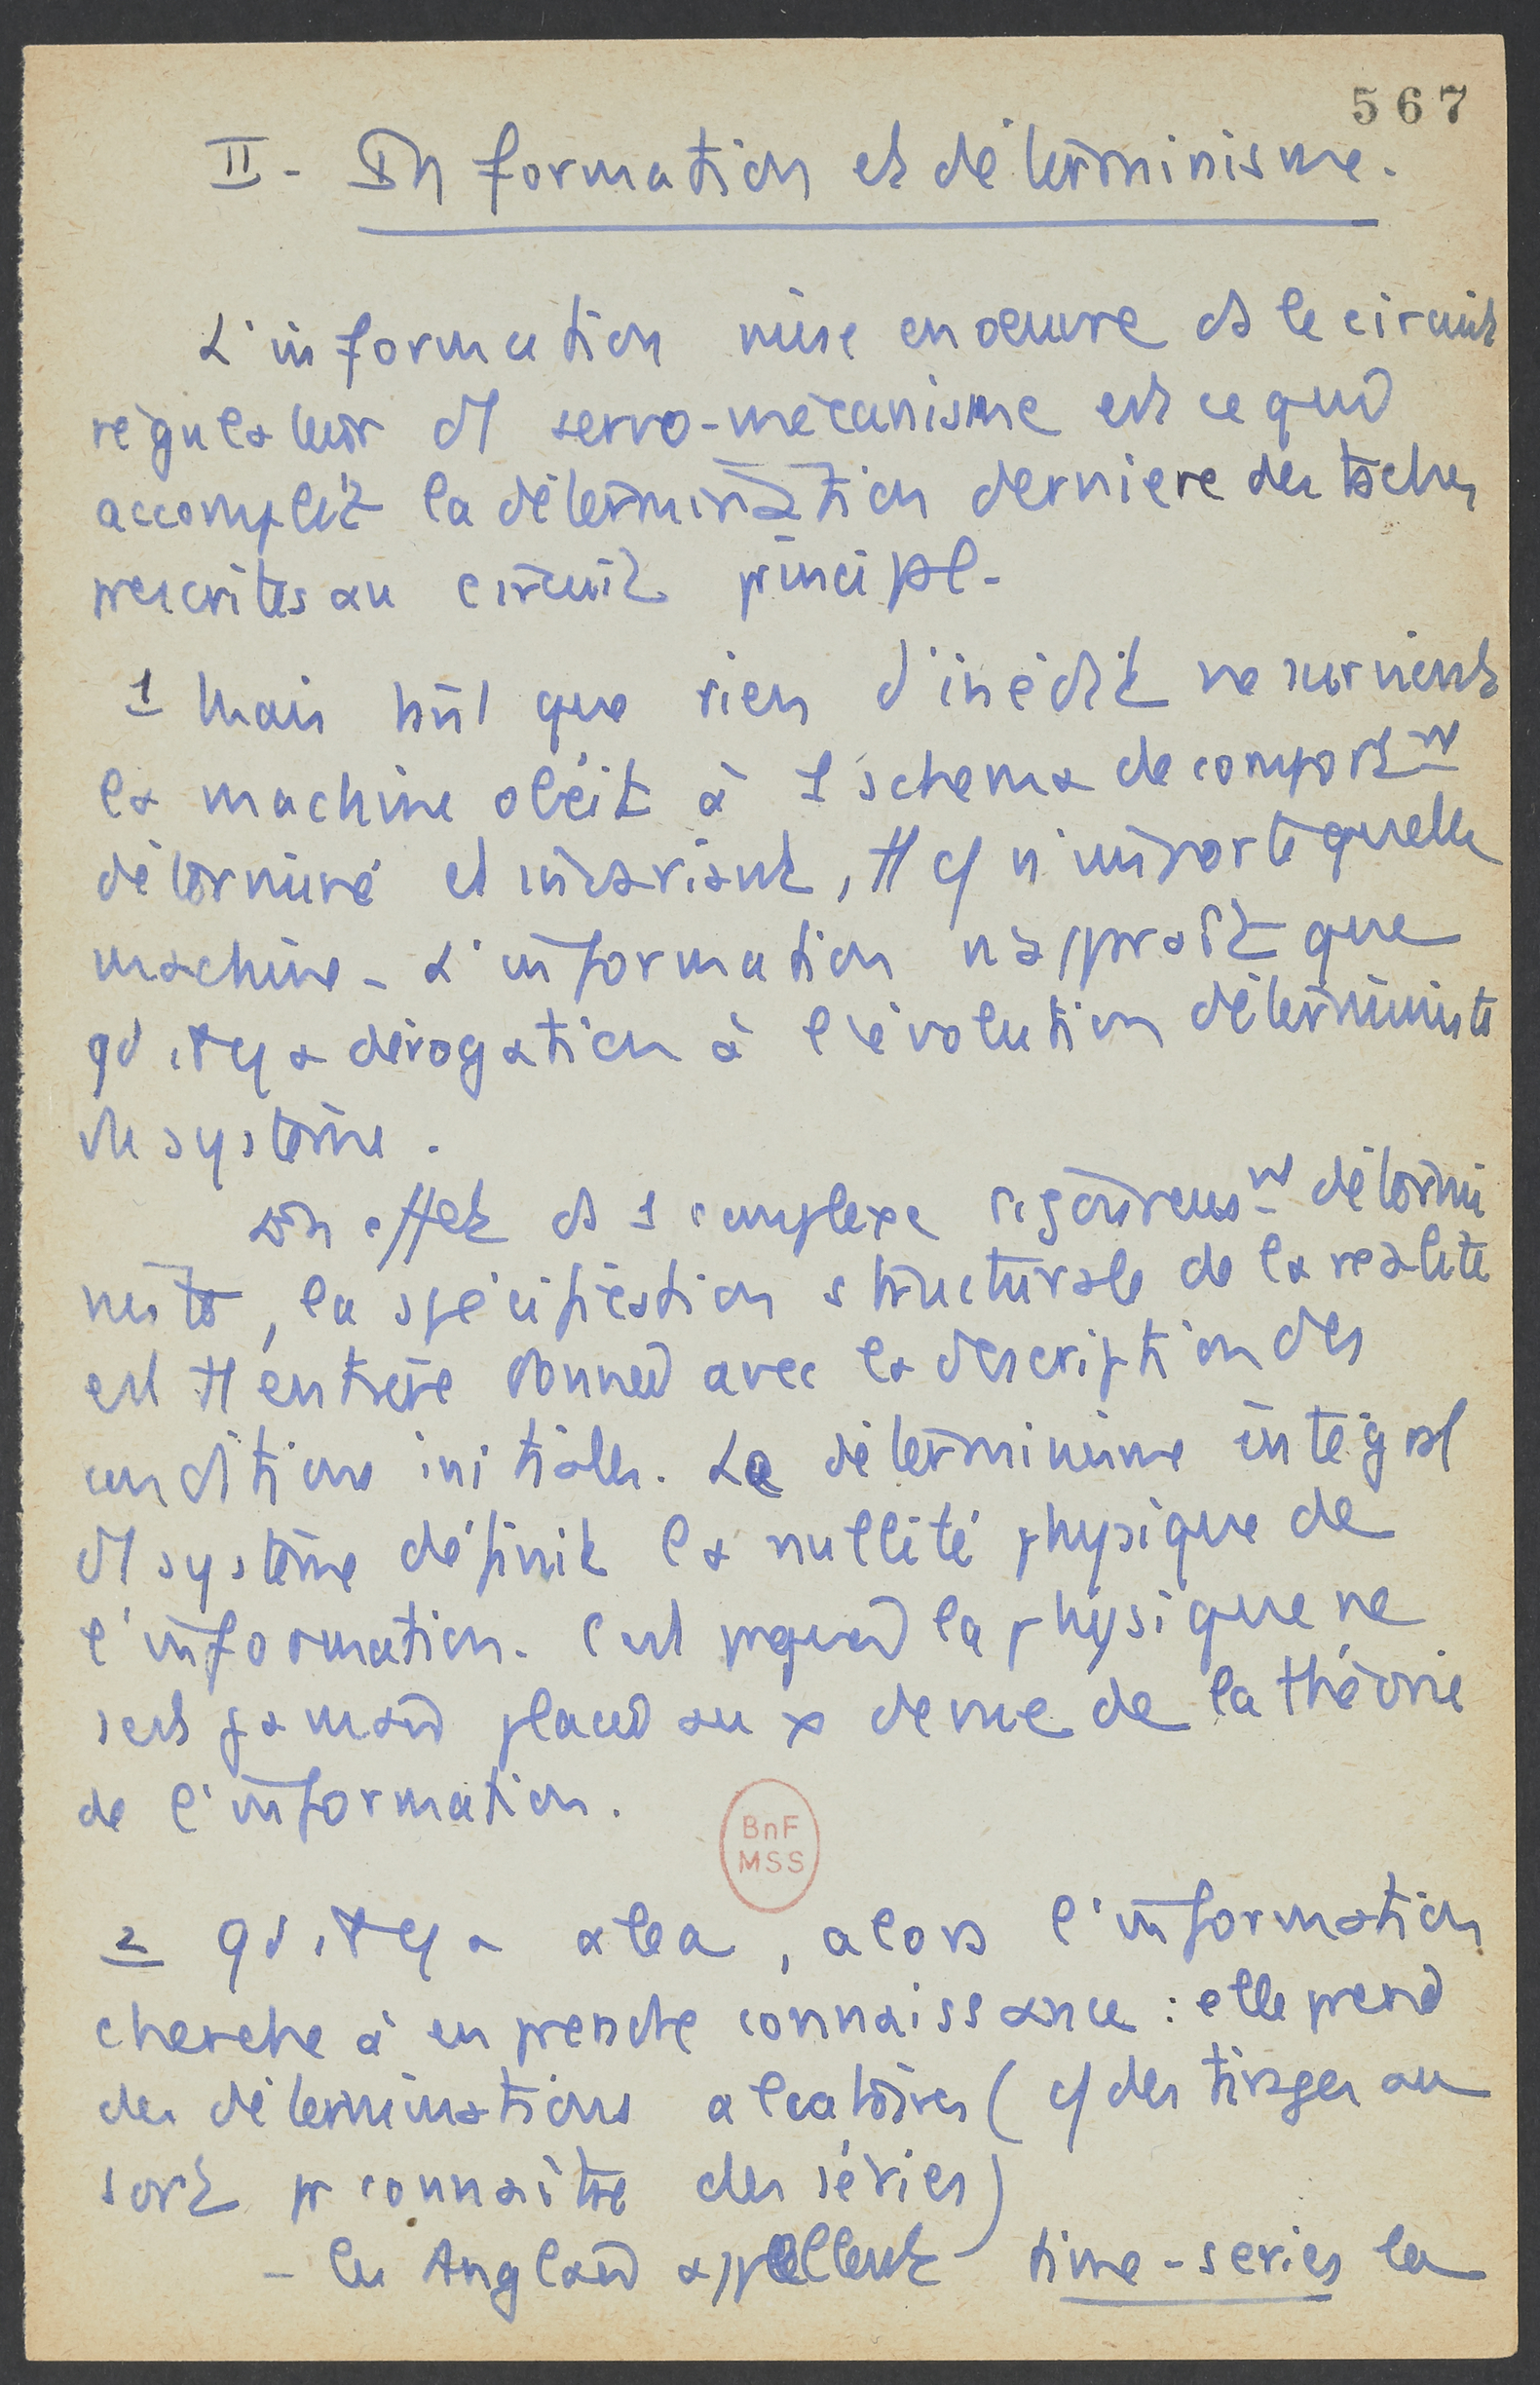 567
II - Information et déterminisme.
L'information mise en oeuvre ds le circuit
régulateur d'1 servo-mécanisme est ce qui
accomplit la détermination dernière des tâches
prescrites au circuit principal -
1 Mais tant que rien d'inédit ne survient
la machine obéit à 1 schéma de comport^mt
déterminé et invariant, tt c/ n'importe quelle
machine - L'information n'apparaît que
qd il y a dérogation à l'évolution déterministe
du système.
En effet ds 1 complexe rigoureus^mt détermi
niste, la spécification structurale de la réalité
est tt entière donnée avec la description des
conditions initiales. Le déterminisme intégral
d'1 système définit la nullité physique de
l'information. C'est pquoi la physique ne
s'est jamais placée au x de vue de la théorie
de l'information.
BnF
MSS
2 qd il y a aléa, alors l'information
cherche à en prendre connaissance : elle prend
des déterminations aléatoires (c/ des tirages au
sort pr connaître des séries)
- les Anglais appellent time-series les